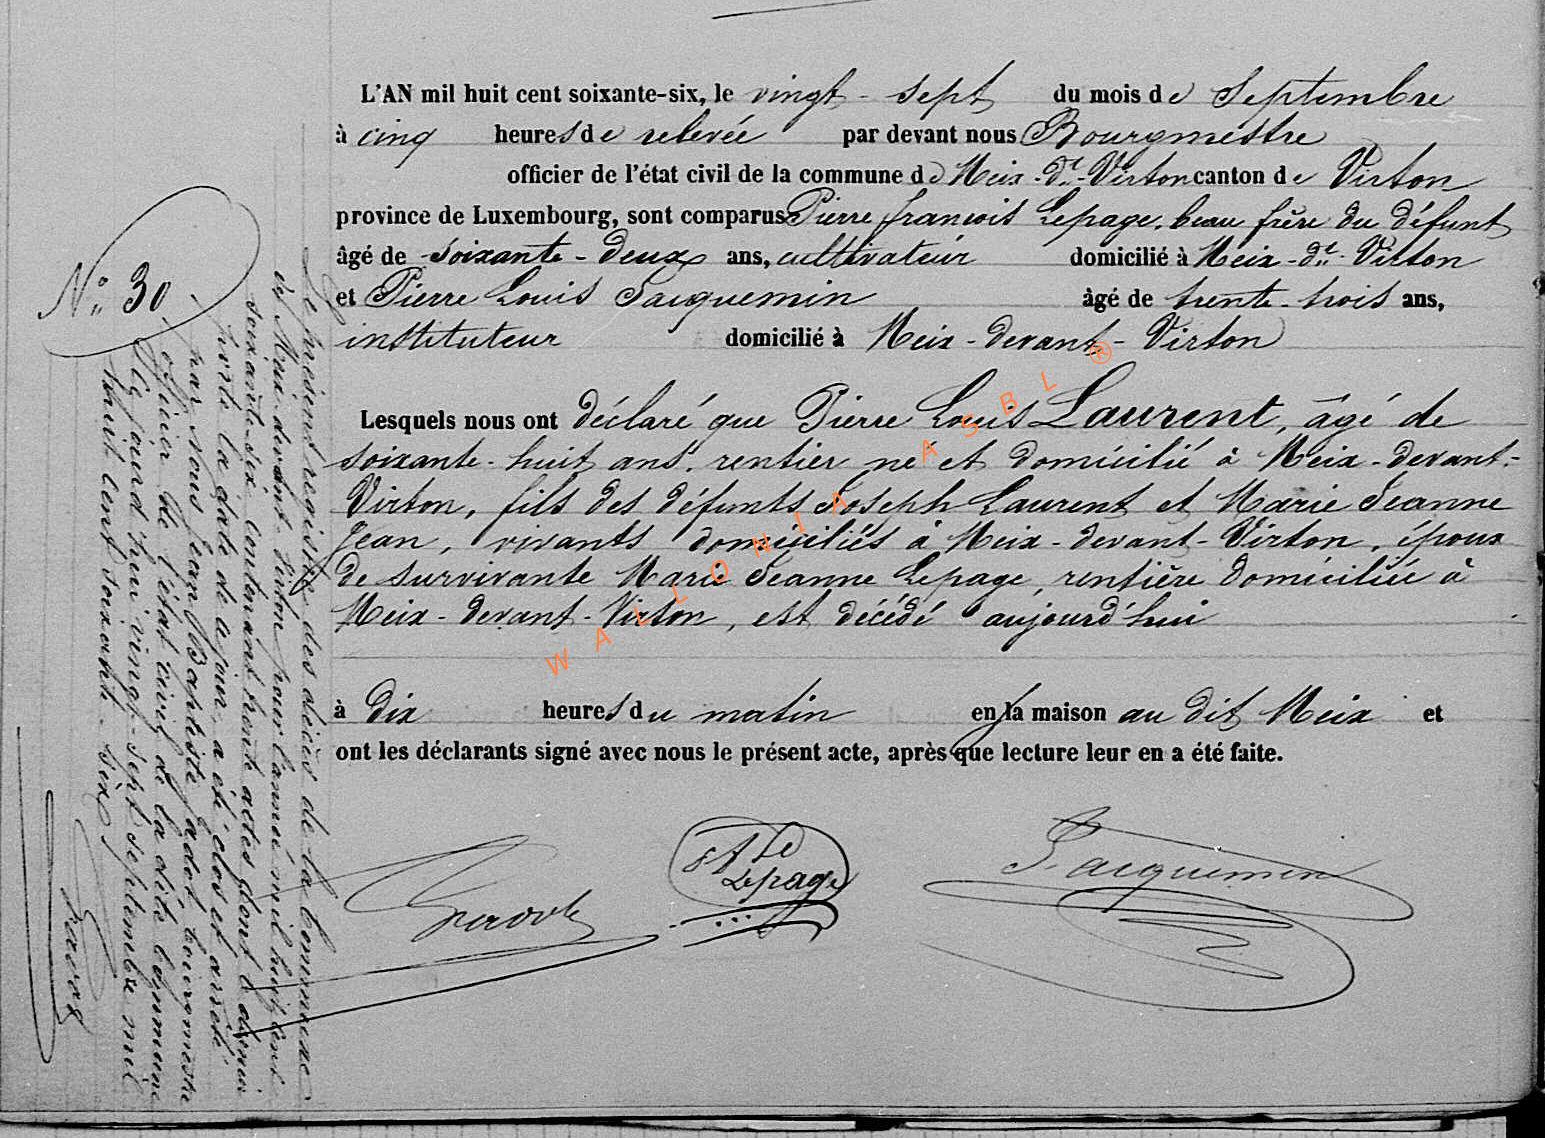 L'AN mil huit cent soixante-six, le vingt-sept du mois de Septembre
à cinq heures de relevée par devant nous Bourgmestre
officier de l'état civil de la commune de Meix-dt-Virton canton de Virton
province de Luxembourg, sont comparus Pierre francois Lepage, beau frère du défunt
âgé de soixante-deux ans, cultivateur domicilié à Meix-dt-Virton
et Pierre Louis Jacquemin âgé de trente-trois ans,
instituteur domicilié à Meix-devant-Virton
Lesquels nous ont déclaré que Pierre Louis Laurent, âgé de
soixante-huit ans, rentier né et domicilié à Meix-devant-
Virton, fils des défunts Joseph Laurent et Marie Jeanne
Jean, vivants domiciliés à Meix-devant-Virton, époux
de survivante Marie Jeanne Lepage, rentière domiciliée à
Meix-devant-Virton, est décédé aujourd'hui
à dix heures du matin en la maison au dit Meix et
ont les déclarants signé avec nous le présent acte, après que lecture leur en a été faite.
Lepage
Jacquemin
No 30.
Le présent registre des décès de la commune
de Meix-devant-Virton pour l'année mil huit cent
soixante-six contenant trente actes dont le dernier
porte la date de ce jour a été clos et arrêté
par nous Jean Baptiste bourgmestre
officier de l'état civil de la dite commune
aujourd'hui vingt-sept septembre mil
huit cent soixante-six
WALLONIA ASBL ®